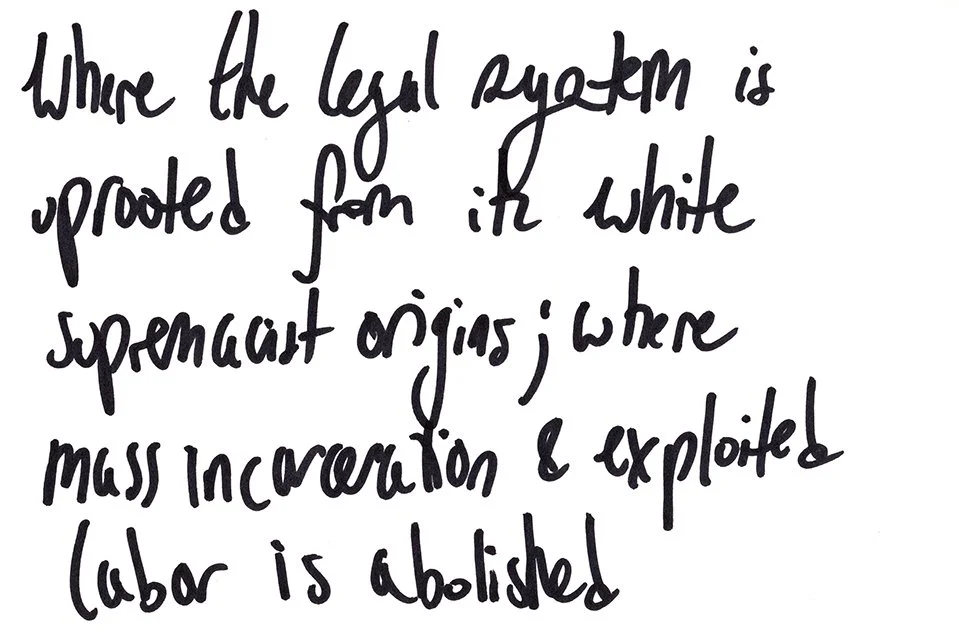 Where the legal system is
uprooted from its white
supremacist origins; where
mass incarceration & exploited
labor is abolished